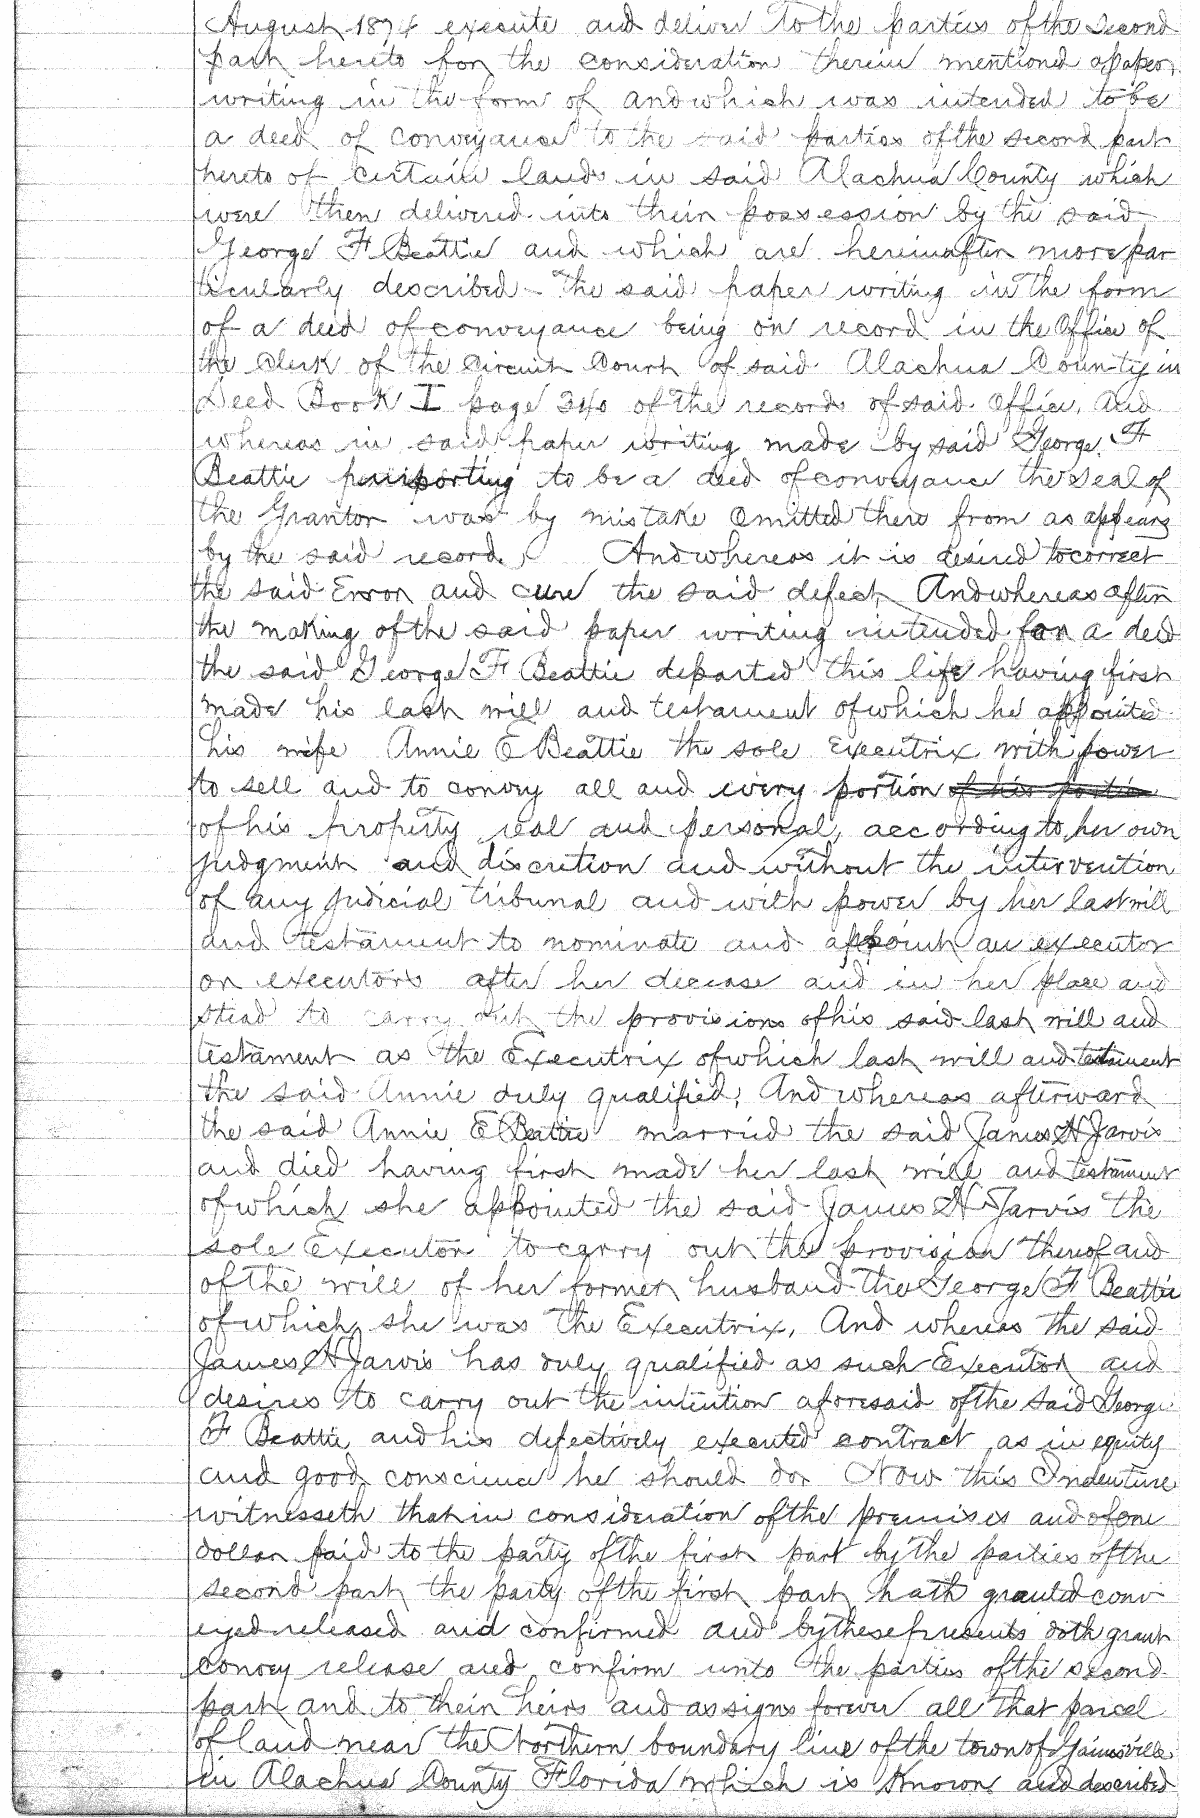 August 1874 execute and deliver to the parties of the second
part hereto for the consideration therein mentioned a paper
writing in the form of and which was intended to be
a deed of conveyance to the said parties of the second part
hereto of certain lands in said Alachua County which
were then delivered into their possession by the said
George F Beattie and which are hereinafter more par
ticularly described - The said paper writing in the form
of a deed of conveyance being on record in the Office of
the Clerk of the Circuit Court of said Alachua County in
Deed Book I page 340 of the records of said Office, and
whereas in said paper writing made by said George F
Beattie purporting to be a deed of conveyance the seal of
the Grantor was by mistake omitted there from as appears
by the said record, And whereas it is desired to correct
the said Error and cure the said defect, And whereas after
the making of the said paper writing intended for a deed
the said George F Beattie departed this life having first
made his last will and testament of which he appointed
his wife Annie E Beattie the sole Executrix with power
to sell and to convey all and every portion of his portion
of his property real and personal, according to her own
judgment and discretion and without the intervention
of any judicial tribunal and with power by her last will
and testament to nominate and appoint an executor
or executors after her decease and in her place and
stead to carry out the provisions of his said last will and
testament as the Executrix of which last will and testament
the said Annie duly qualified, And whereas afterward
the said Annie E Beattie married the said James H Jarvis
and died having first made her last will and testament
of which she appointed the said James H Jarvis the
sole Executor to carry out the provision thereof and
of the will of her former husband the George F Beattie
of which she was the Executrix, And whereas the said
James H Jarvis has duly qualified as such Executor and
desires to carry out the intention aforesaid of the said George
F Beattie and his defectively executed contract as in equity
and good conscience he should do. Now this Indenture
witnesseth that in consideration of the premises and of one
dollar paid to the party of the first part by the parties of the
second part the party of the first part hath granted conv-
eyed released and confirmed and by these presents doth grant
convey release and confirm unto the parties of the second
part and to their heirs and assigns forever all that parcel
of land near the Northern boundary line of the town of Gainesville
in Alachua County Florida which is known and described